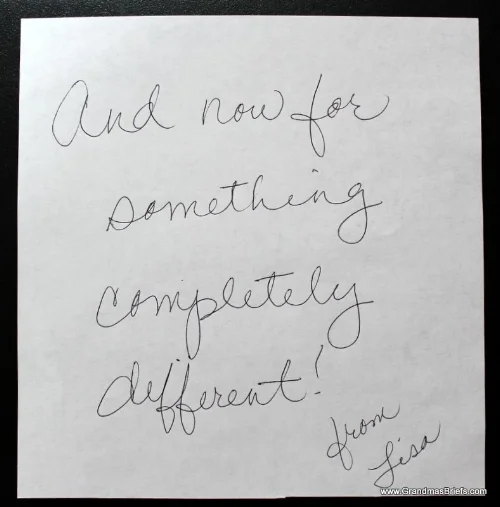 And now for
something
completely
different!
from
Lisa
www.GrandmasBriefs.com